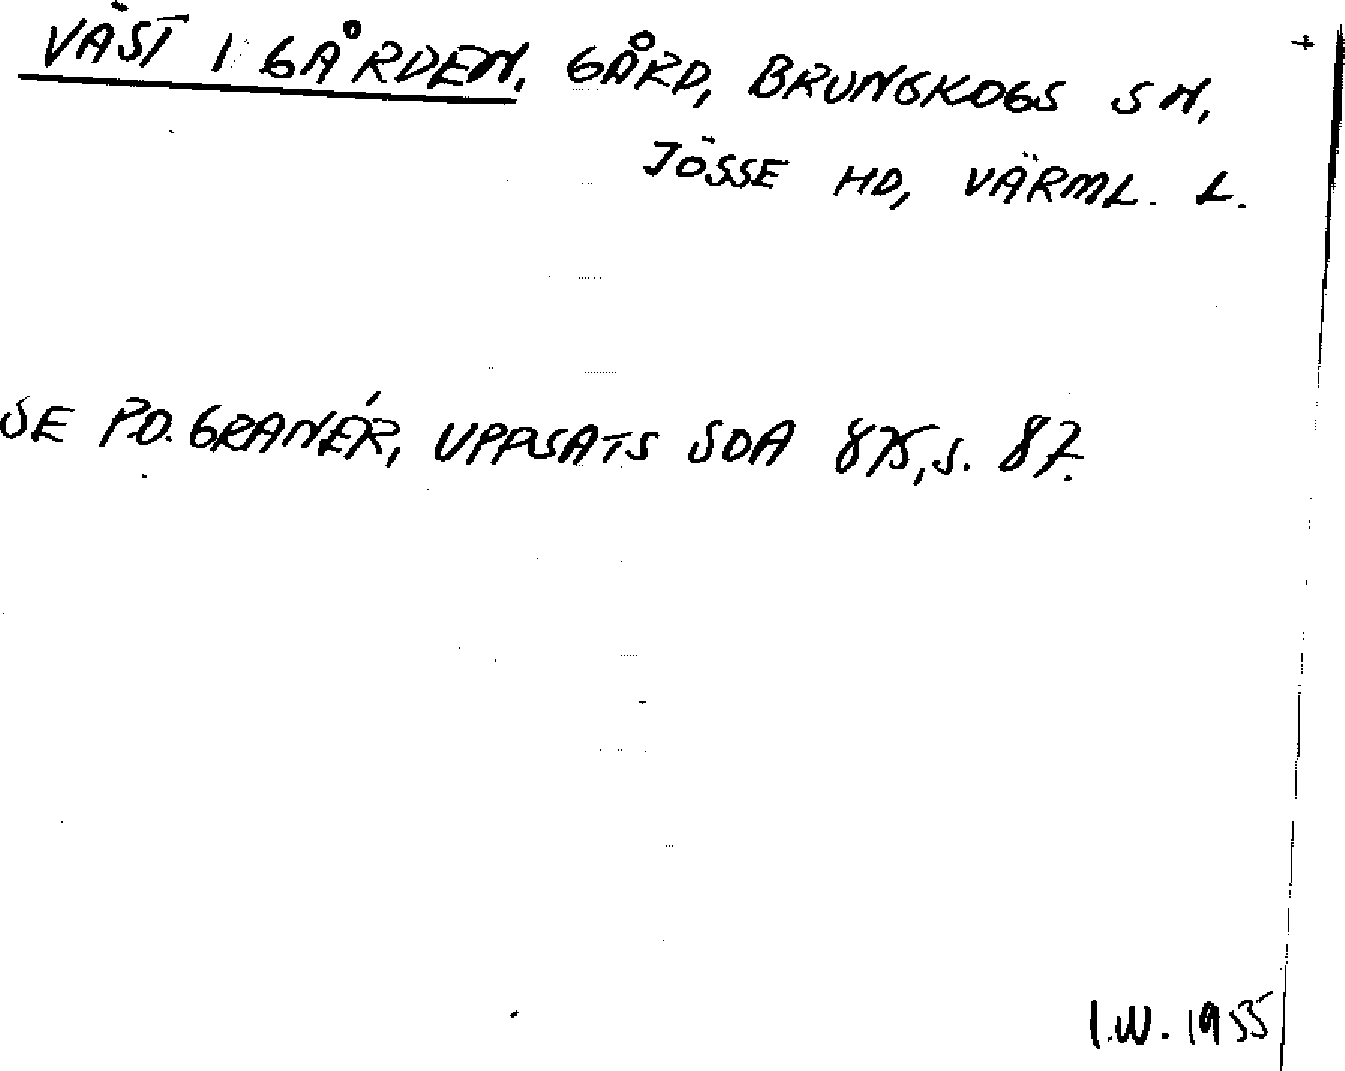 VÄST I GÅRDEN, GÅRD, BRUNGKOGS SN, +
JÖSSE HD, VÄRML. L.
SE P.O. GRANÉR, UPPSATS SOA 875, S. 87.
I.W. 1955